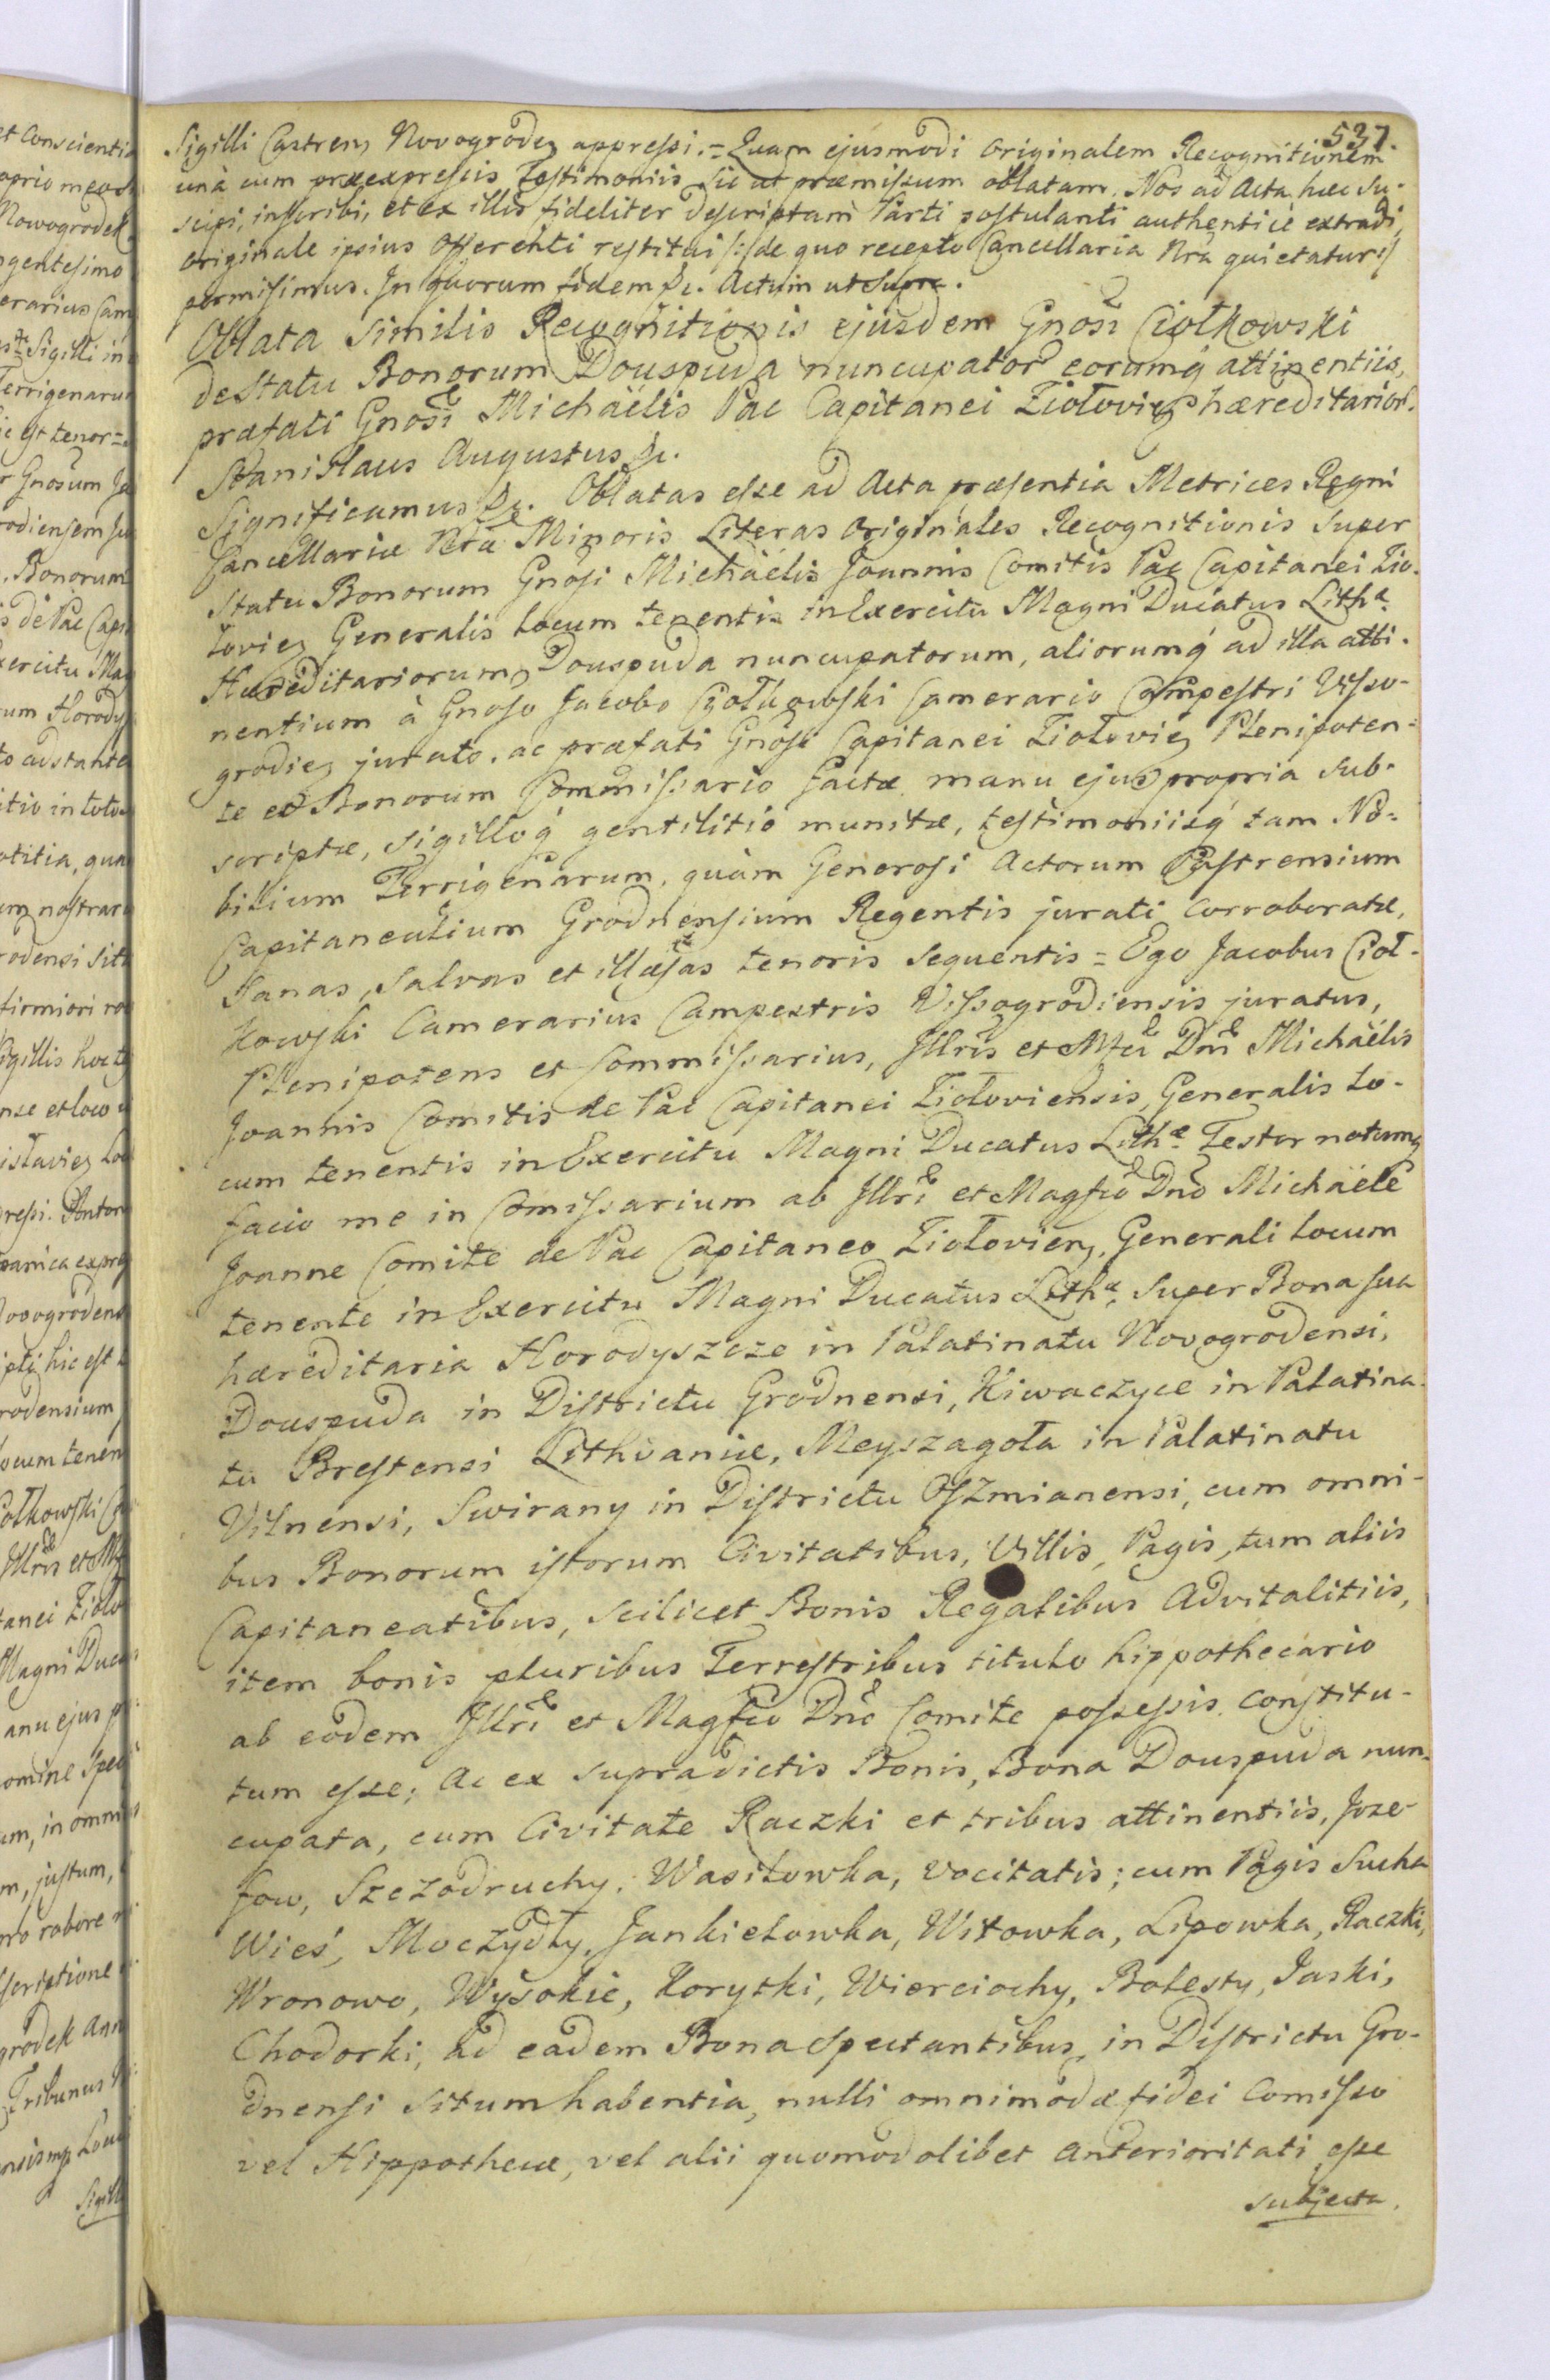 537.
Sigilli Castren, Novogrodeń appressi. = Quam ejusmodi originalem Recognitionem
unà cum præexpressis Testimoniis sic ut præmissum oblatam, Nos ad Acta hæc su-
scipi, inscribi, et ex illis fideliter descriptam Parti postulanti authenticè extradi,
originale ipsius Offerenti restitui /:/ de quo recepto Cancellaria Nra quietatur /:/
permisimus. In quorum fidem &c. Actum ut Supra.
Oblata Similis Recognitionis ejusdem Gnosi Ciołkowski
de Statu Bonorum Douspuda nuncupator eorumq́ attinentiis,
præfati Gnosi Michaëlis Pac Capitanei Ziołovieņ hæreditarior.
Stanislaus Augustus &c.
Significamus &c. Oblatas esse ad Acta præsentia Metrices Regni
Cancellariæ Nræ Minoris Literas Originales Recognitionis Super
Statu Bonorum Gnosi Michaëlis Joannis Comitis Pac Capitanei Zio-
łovieņ Generalis Locum tenentis in Exercitu Magni Ducatus Lithæ
Hæreditariorum, Douspuda nuncupatorum, aliorumq́ ad illa atti-
nentium à Gnoso Jacobo Ciołkowski Camerario Campestri Visso-
grodieņ jurato, ac præfati Gnosi Capitanei Ziołovieņ Plenipoten-
te et Bonorum Commissario factæ manu ejus propria sub-
scriptæ, sigilloq́ gentilitio munitæ, testimoniisq́ tam No-
bilium Terrigenarum, quàm Generosi Actorum Castrensium
Capitanealium Grodnensium Regentis jurati corroboratæ,
Sanas, Salvas et illæsas tenoris sequentis = Ego Jacobus Cioł-
kowski Camerarius Campestris Vissogrodiensis juratus,
Plenipotens et Commissarius, Illris et Mfci Dni Michaëlis
Joannis Comitis de Pac Capitanei Ziołoviensis, Generalis Lo-
cum tenentis in Exercitu Magni Ducatus Lithæ Testor notumq́
facio me in Comissarium ab Illri et Magfco Dno Michaële
Joanne Comite de Pac Capitaneo Ziołovieņ, Generali Locum
tenente in Exercitu Magni Ducatus Lithæ, Super Bona sua
hæreditaria Horodyszcze in Palatinatu Novogrodensi,
Douspuda in Districtu Grodnensi, Kiwaczyce in Palatina-
tu Brestensi Lithvaniæ, Meyszagoła in Palatinatu
Vilnensi, Swirany in Districtu Oszmianensi, cum omni-
bus Bonorum istorum Civitatibus, Villis, Pagis, tum aliis
Capitaneatibus, scilicet Bonis Regalibus Advitalitiis,
item bonis pluribus Terrestribus titulo hippothecario
ab eodem Illri et Magfco Dno Comite possessis constitu-
tum esse; Ac ex supradictis Bonis, Bona Douspuda nun-
cupata, cum Civitate Raczki et tribus attinentiis, Joze-
fow, Szczodruchy, Wasilowka, vocitatis; cum Pagis Sucha
Wieś, Moczydły, Jankielowka, Witowka, Lipowka, Raczki,
Wronowo, Wysokie, Korytki, Wierciochy, Bolesty, Jaski,
Chodorki, ad eadem Bona spectantibus, in Districtu Gro-
dnensi situm habentia, nulli omnimodæ fidei Comisso
vel Hippothecæ, vel alii quomodolibet anterioritati esse
subjecta.